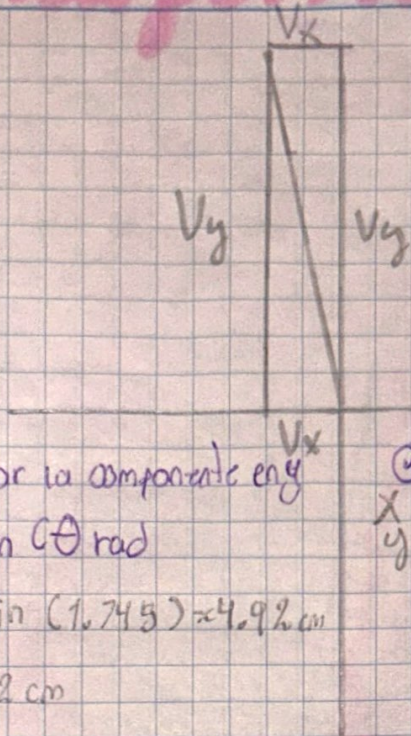 Vx
Vy
Vy
Vx
or la componente en y
n (θ rad
x
y
in (1.745) ≈ 4.92 cm
2 cm